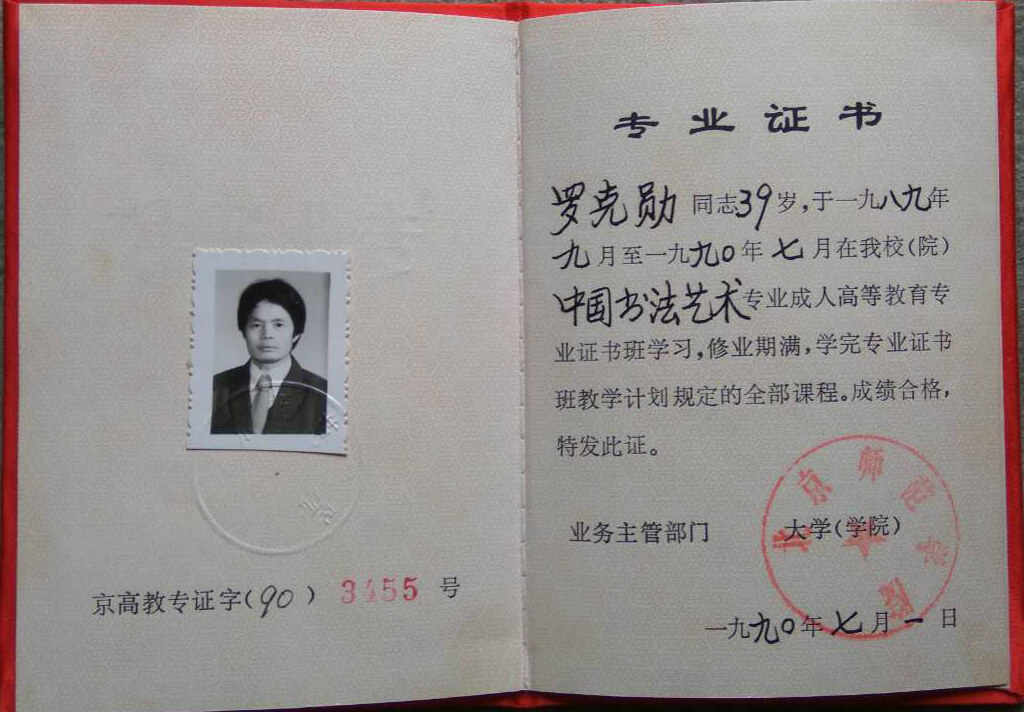 京高教专证字(90) 3455 号
专业证书
罗克勋 同志39岁,于一九八九年
九月至一九九〇年七月在我校(院)
中国书法艺术专业成人高等教育专
业证书班学习,修业期满,学完专业证书
班教学计划规定的全部课程。成绩合格,
特发此证。
业务主管部门 大学(学院)
北京师范学院
一九九〇年七月一日